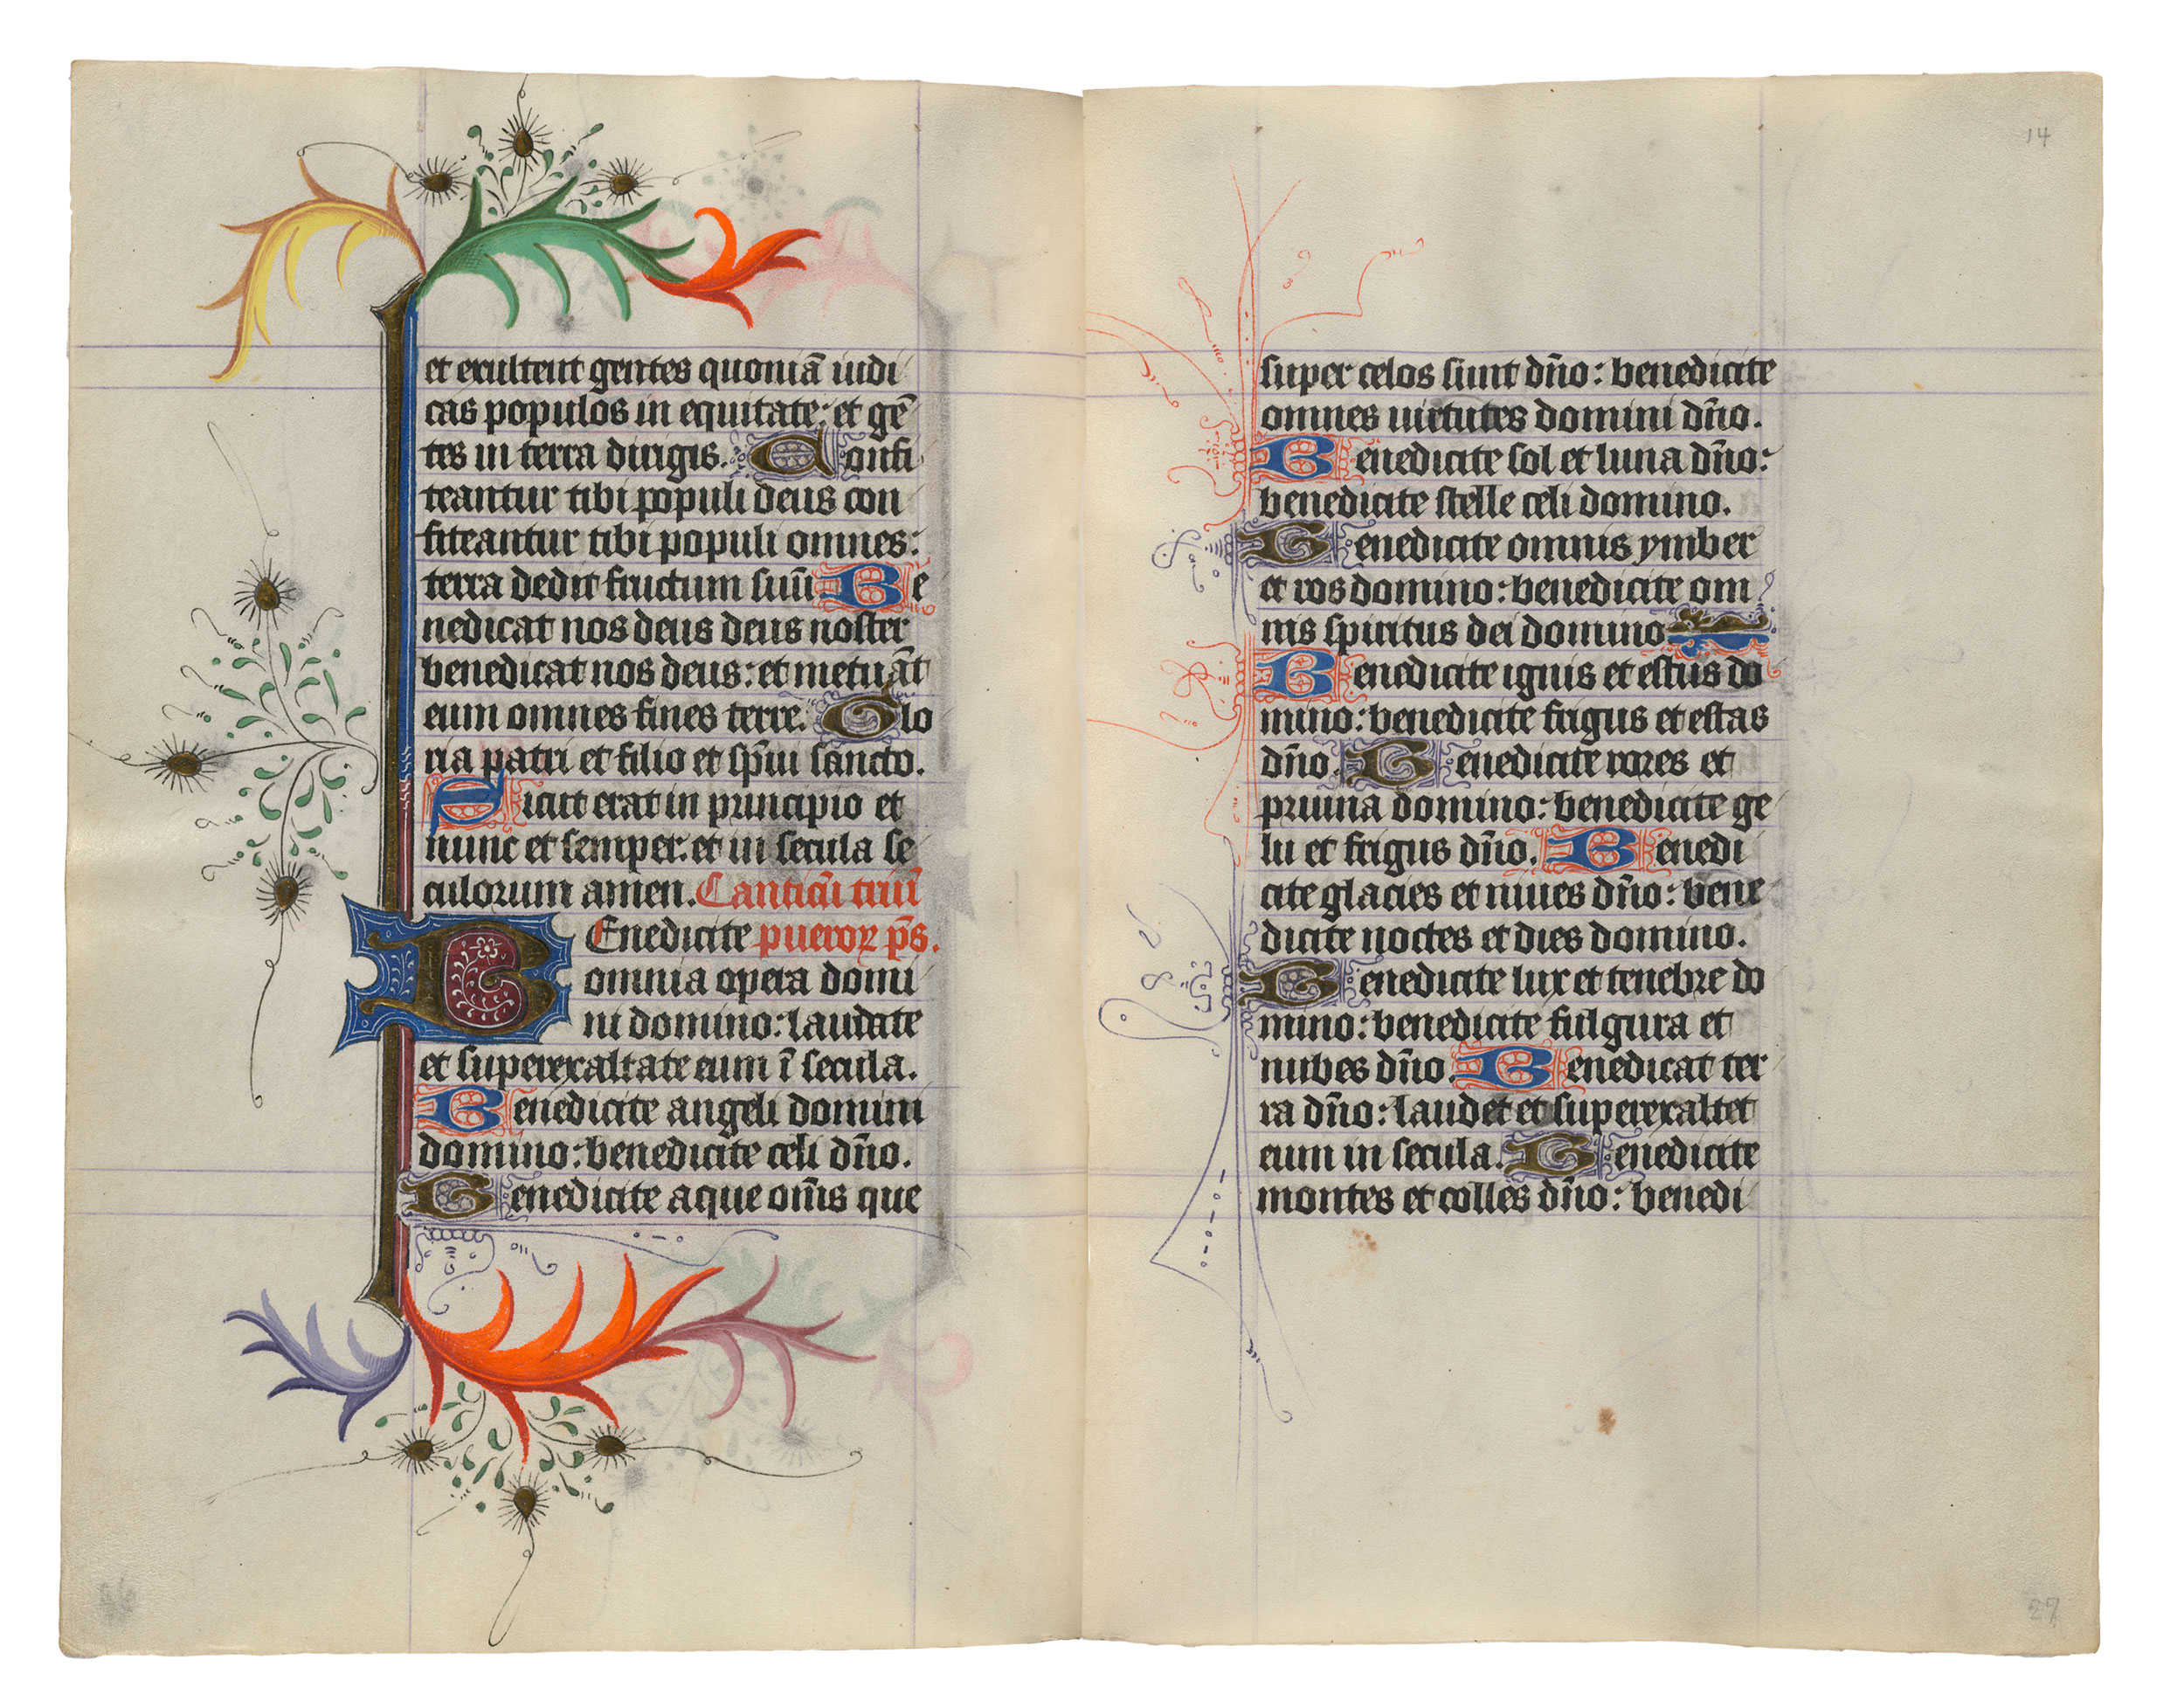 et exultent gentes quoniā iudi
cas populos in equitate: et gē
tes in terra dirigis. Confi
teantur tibi populi deus con
fiteantur tibi populi omnes:
terra dedit fructum suū Be
nedicat nos deus deus noster
benedicat nos deus: et metuāt
eum omnes fines terre. Glo
ria patri et filio et sp̄ui sancto.
Sicut erat in principio et
nunc et semper: et in secula se
culorum amen. Canticū triū
BEnedicite pueroꝝ p̄s.
omnia opera domi
ni domino: laudate
et superexaltate eum ī secula.
Benedicite angeli domini
domino: benedicite celi dn̄o.
Benedicite aque om̄s que
14
super celos sunt dn̄o: benedicite
omnes uirtutes domini dn̄o.
Benedicite sol et luna dn̄o:
benedicite stelle celi domino.
Benedicite omnis ymber
et ros domino: benedicite om
nis spiritus dei domino
Benedicite ignis et estus do
mino: benedicite frigus et estas
dn̄o. Benedicite rores et
pruina domino: benedicite ge
lu et frigus dn̄o. Benedi
cite glacies et niues dn̄o: bene
dicite noctes et dies domino.
Benedicite lux et tenebre do
mino: benedicite fulgura et
nubes dn̄o. Benedicat ter
ra dn̄o: laudet et superexaltet
eum in secula. Benedicite
montes et colles dn̄o: benedi
27